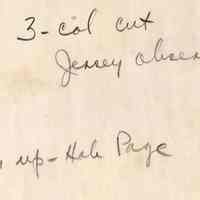 3-col cut
Jersey obser
up-Hole Page